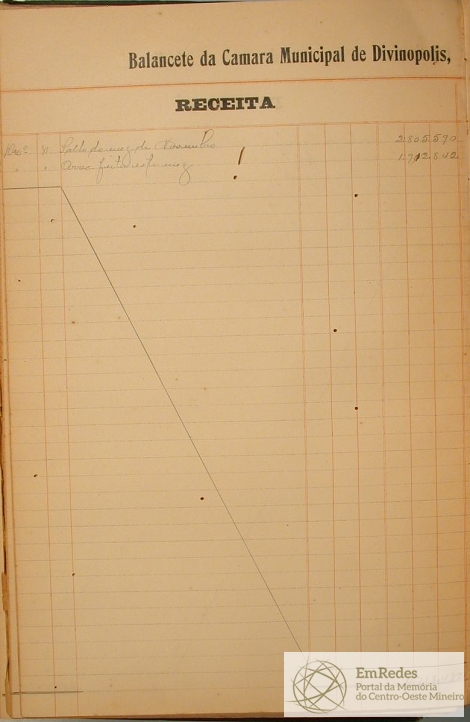 Balancete da Camara Municipal de Divinopolis,
RECEITA
Saldo do mez de Novembro 2.805.590
feita neste mez 1.712.802
EmRedes
Portal da Memória
do Centro-Oeste Mineiro